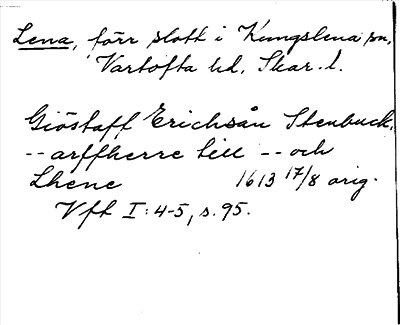 Lena, förr slott i Kungslena sn,
Vartofta hd, Skar. l.
Giöstaff Erichsån Stenbuck,
-- arffherre till -- och
Lhene 1613 17/8 orig.
Vft I:4-5, s. 95.